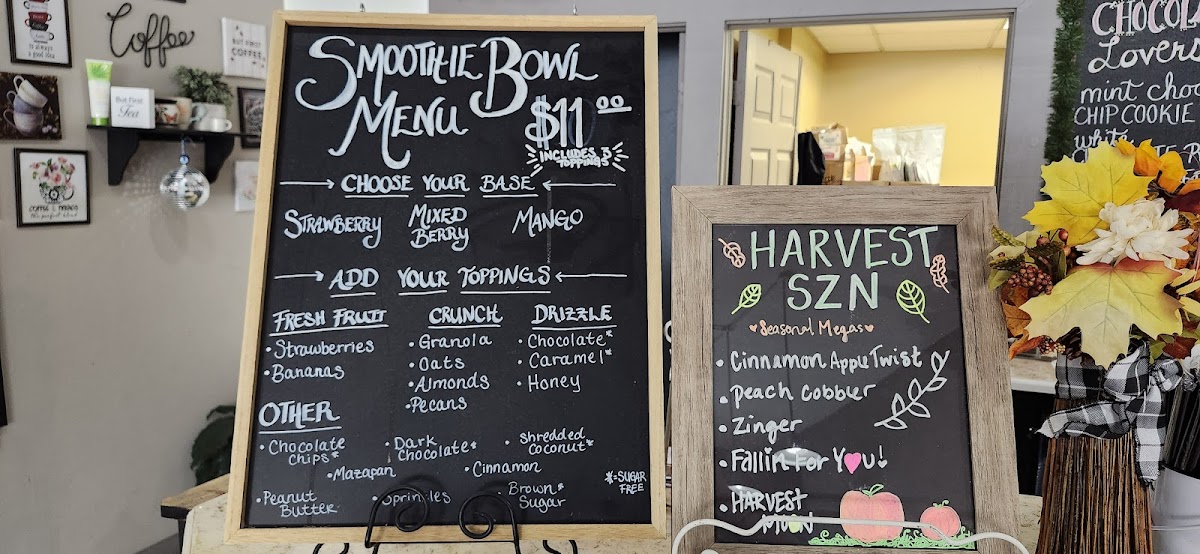 Coffee
BUT FIRST
COFFEE
But First
Tea
a good idea
SMOOTHIE BOWL
MENU
$11.00
INCLUDES 3
TOPPINGS
CHOOSE YOUR BASE
STRAWBERRY
MIXED
BERRY
MANGO
ADD YOUR TOPPINGS
FRESH FRUIT
• Strawberries
• Bananas
CRUNCH
• Granola
• Oats
• Almonds
• Pecans
DRIZZLE
• Chocolate*
• Caramel*
• Honey
OTHER
• Chocolate
Chips*
• Dark
Chocolate*
• shredded
coconut*
• Mazapan
• Cinnamon
• Peanut
Butter
• Sprinkles
• Brown*
Sugar
*=SUGAR
FREE
HARVEST
SZN
Seasonal Megas
• Cinnamon Apple Twist
• Peach Cobbler
• Zinger
• Fallin For You!
• HARVEST
MOON
CHOCOL
Lovers
mint choc
CHIP COOKIE
white